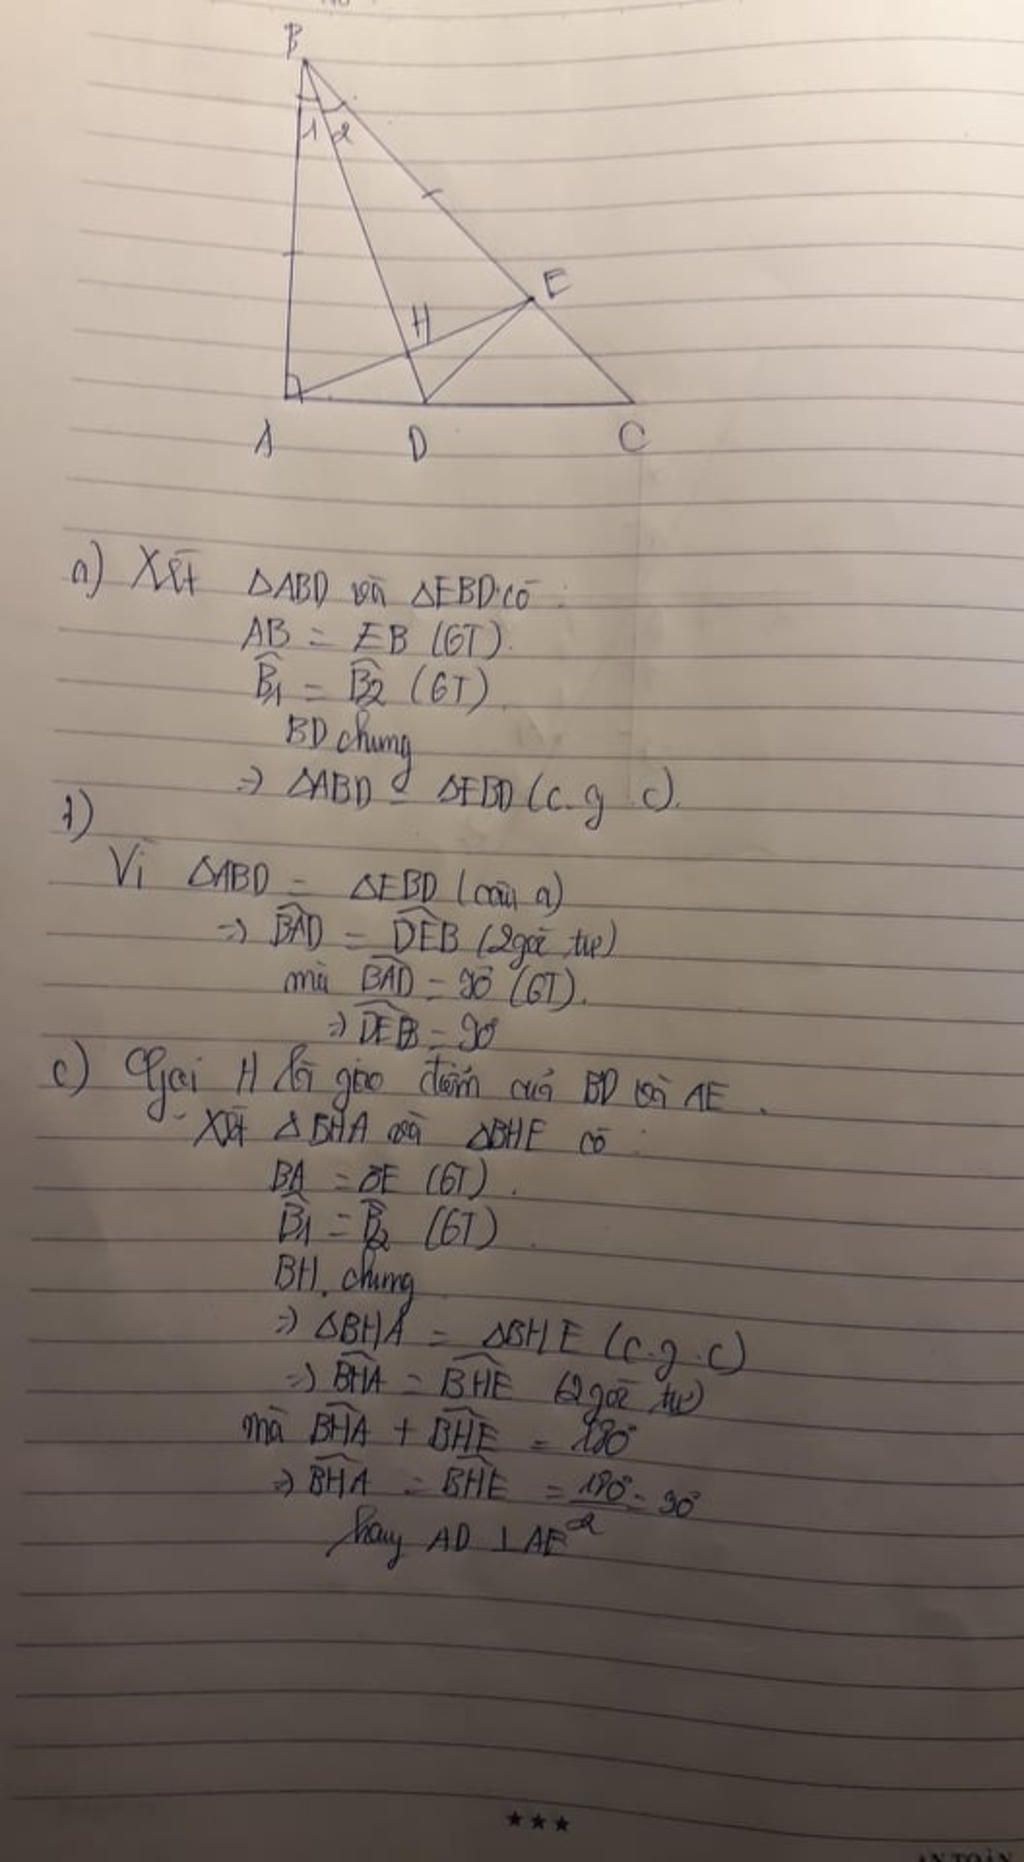 B
1 2
E
H
A D C
a) Xét ΔABD và ΔEBD có :
AB = EB (GT).
B̂1 = B̂2 (GT).
BD chung
=> ΔABD = ΔEBD (c.g.c).
b)
Vì ΔABD = ΔEBD (câu a)
=> BAD = DEB (2 góc tư)
mà BAD = 90° (GT).
=> DEB = 90°
c) Gọi H là giao điểm của BD và AE.
- Xét ΔBHA và ΔBHE có :
BA = BE (GT).
B̂1 = B̂2 (GT).
BH chung
=> ΔBHA = ΔBHE (c.g.c)
=> BHA = BHE (2 góc tư)
mà BHA + BHE = 180°
=> BHA = BHE = 180°/2 = 90°
hay AD ⊥ AE
★★★